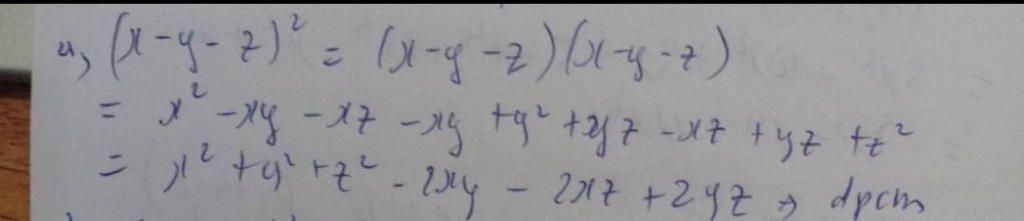 a, (x-y-z)² = (x-y-z)(x-y-z)
= x² -xy -xz -xy +y² +yz -xz +yz +z²
= x² +y² +z² - 2xy - 2xz + 2yz → dpcm